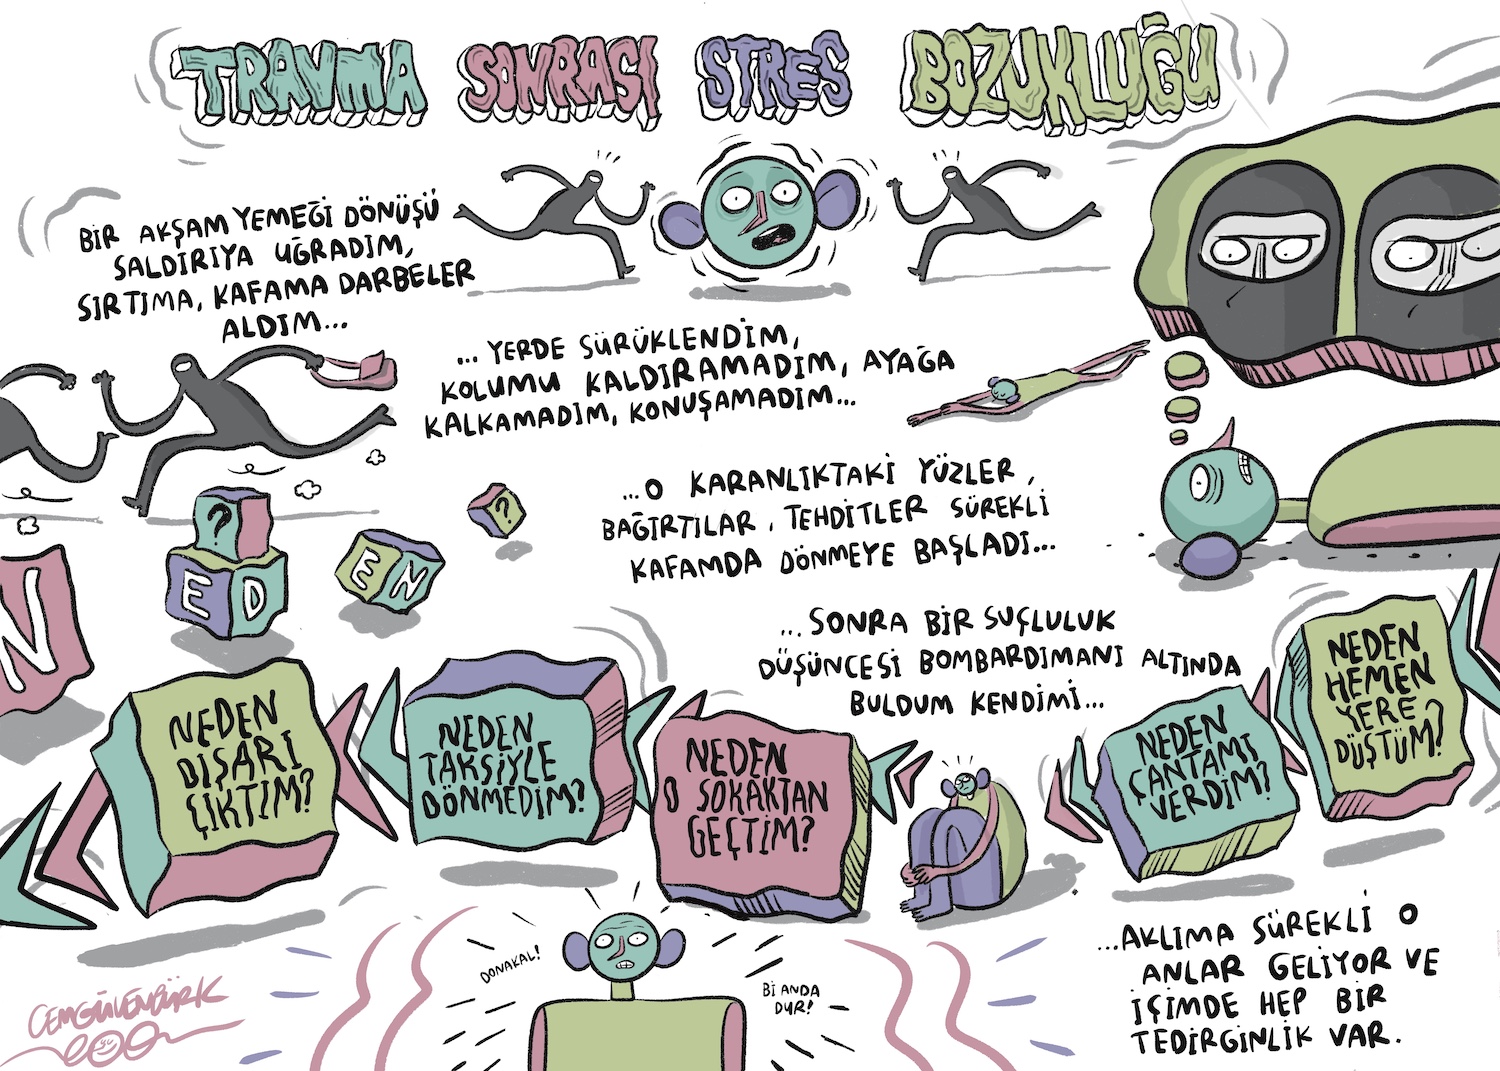 TRAVMA SONRASI STRES BOZUKLUĞU
BİR AKŞAM YEMEĞİ DÖNÜŞÜ
SALDIRIYA UĞRADIM,
SIRTIMA, KAFAMA DARBELER
ALDIM...
... YERDE SÜRÜKLENDİM,
KOLUMU KALDIRAMADIM, AYAĞA
KALKAMADIM, KONUŞAMADIM...
...O KARANLIKTAKİ YÜZLER,
BAĞIRTILAR, TEHDİTLER SÜREKLİ
KAFAMDA DÖNMEYE BAŞLADI...
?
E D
E N
?
N
... SONRA BİR SUÇLULUK
DÜŞÜNCESİ BOMBARDIMANI ALTINDA
BULDUM KENDİMİ...
NEDEN
HEMEN
YERE
DÜŞTÜM?
NEDEN
ÇANTAMI
VERDİM?
NEDEN
O SOKAKTAN
GEÇTİM?
NEDEN
TAKSİYLE
DÖNMEDİM?
NEDEN
DIŞARI
ÇIKTIM?
DONAKAL!
Bİ ANDA
DUR!
...AKLIMA SÜREKLİ O
ANLAR GELİYOR VE
İÇİMDE HEP BİR
TEDİRGİNLİK VAR.
CEMGÜVENTÜRK